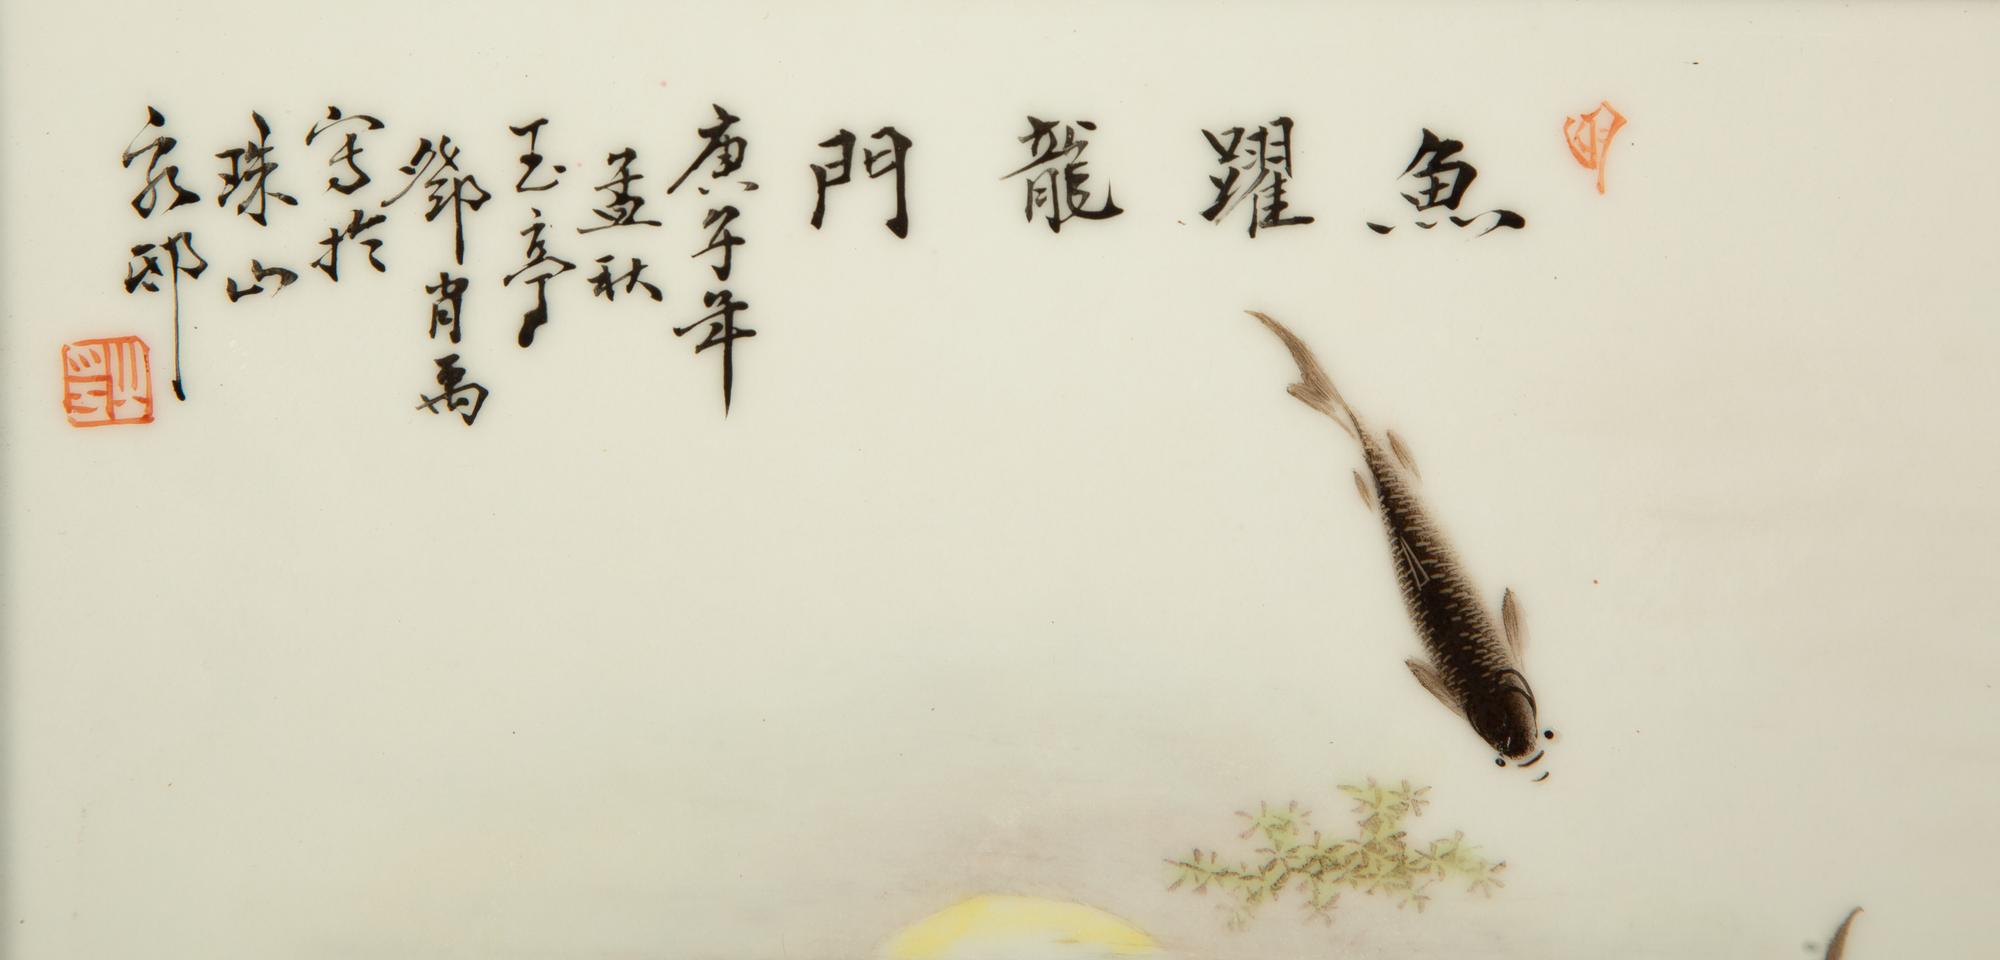 魚躍龍門
庚午年
孟秋
玉亭
鄧肖禹
寫於
珠山
客邸